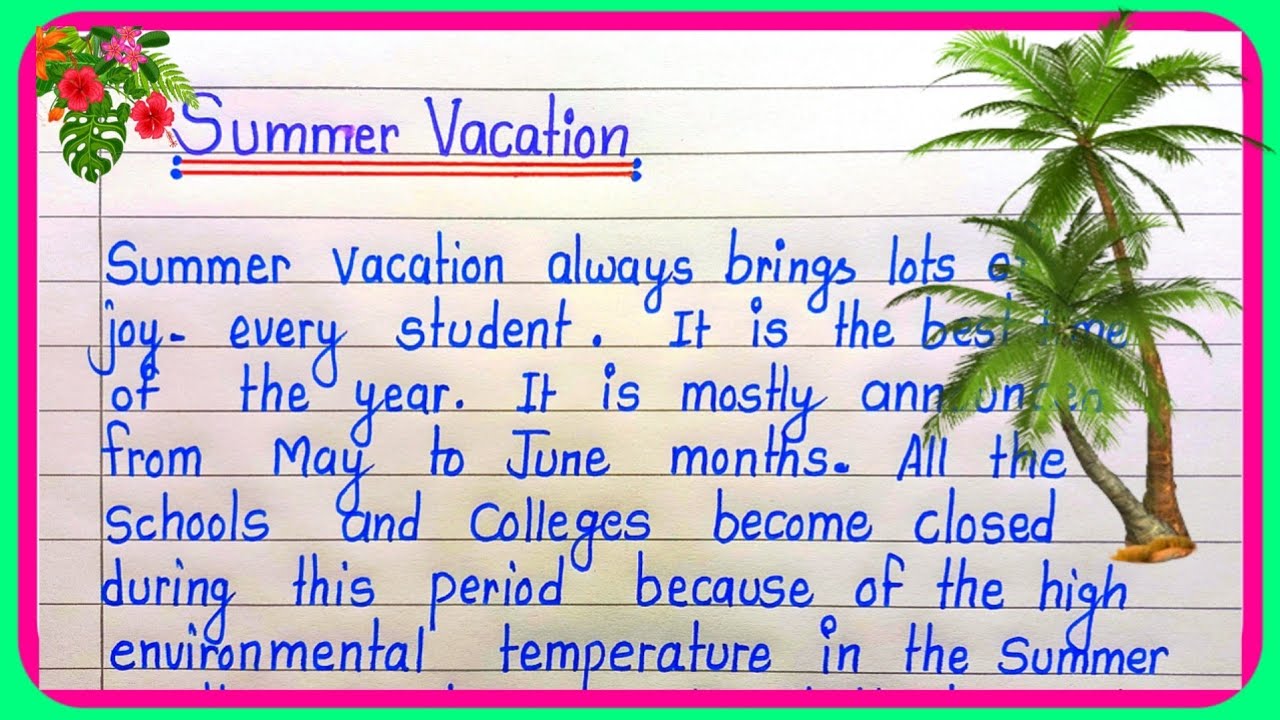 Summer Vacation
Summer vacation always brings lots
joy- every student. It is the best time
of the year. It is mostly
from May to June months. All the
schools and colleges become closed
during this period because of the high
environmental temperature in the summer